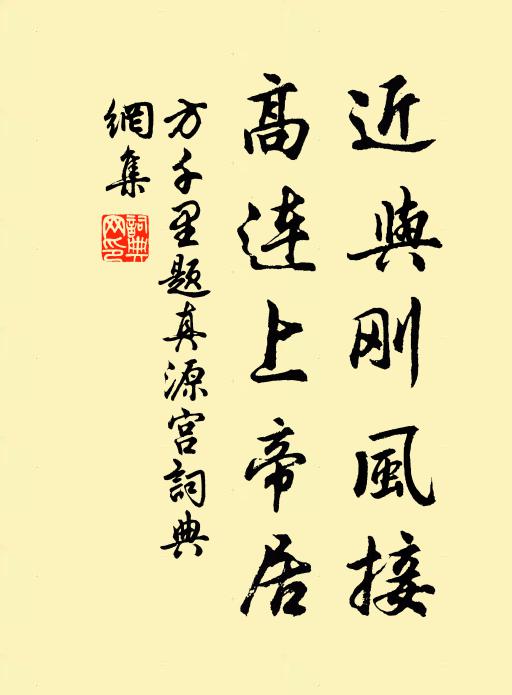 近與刚風接
高連上帝居
方千里題真源宫詞典
網集
詞典
网印